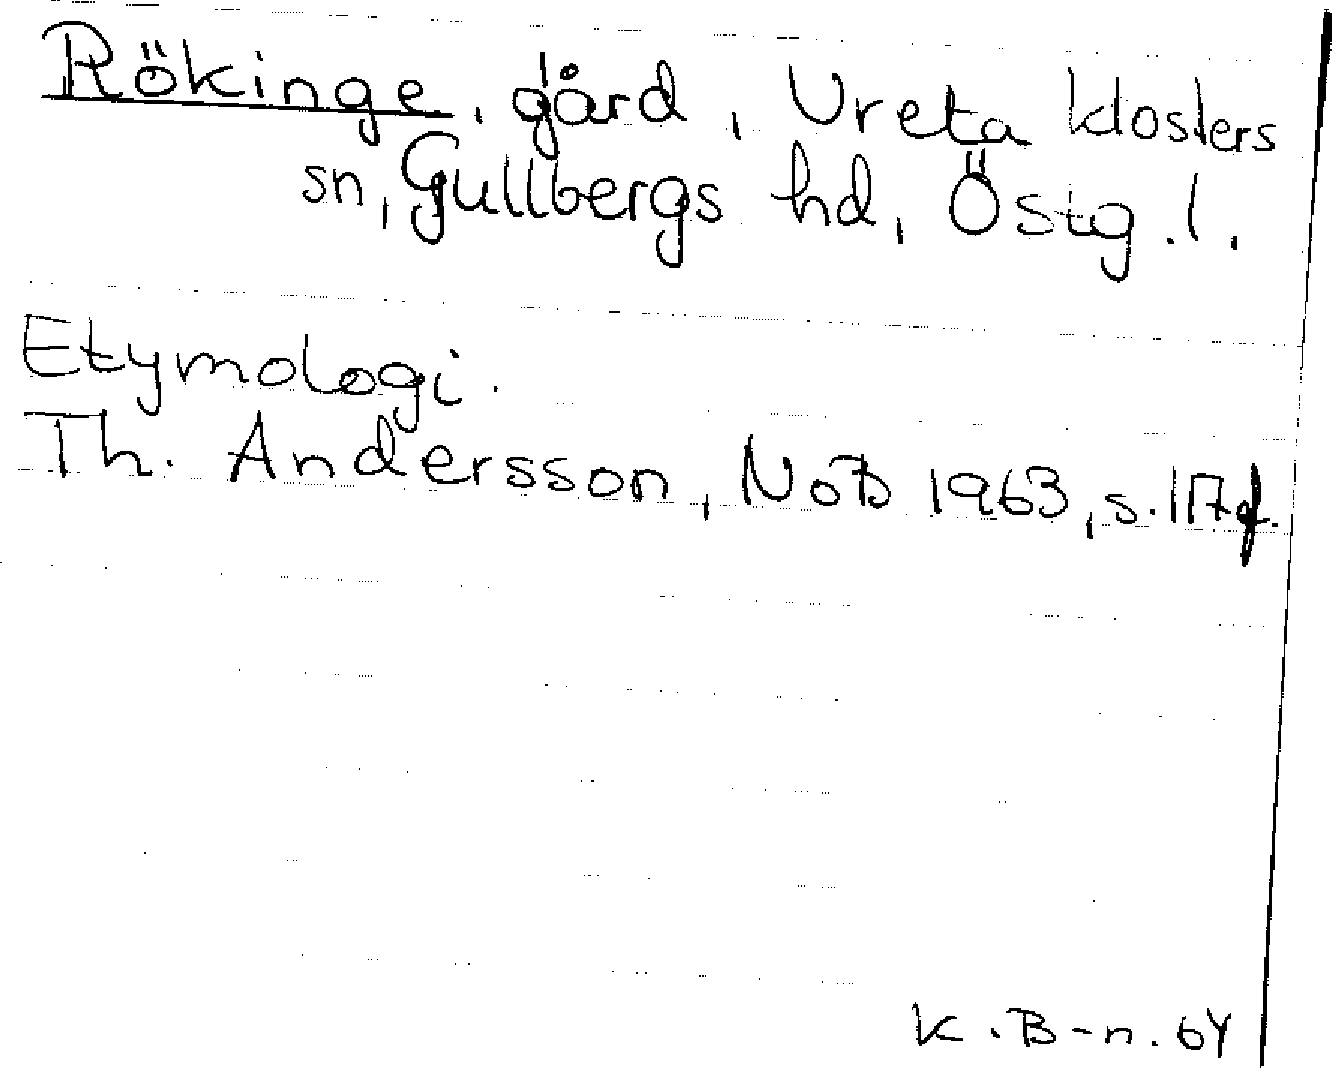 Rökinge, gård, Vreta klosters
sn, Gullbergs hd, Östg.l.
Etymologi.
Th. Andersson, NoB 1963, s. 17 f.
K. B-n. 64